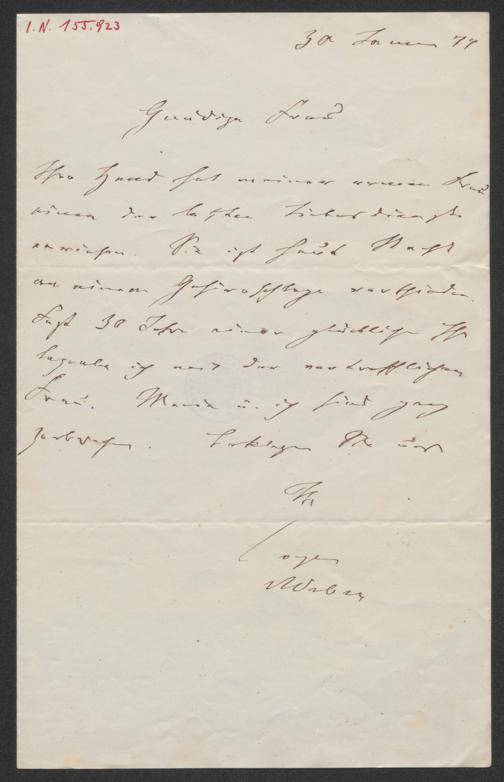 I.N. 155.923
30 Januar 79
Gnädige Frau
Ihre Hand hat meiner armen Frau
einen der letzten Liebesdienste
erwiesen. Sie ist heute Nacht
an einem Gehirnschlage verschieden.
Fast 30 Jahre einer glücklichen Ehe
begrabe ich mit der vortrefflichen
Frau. Maria u. ich sind ganz
zerbrochen. Beklagen Sie uns
Ihr